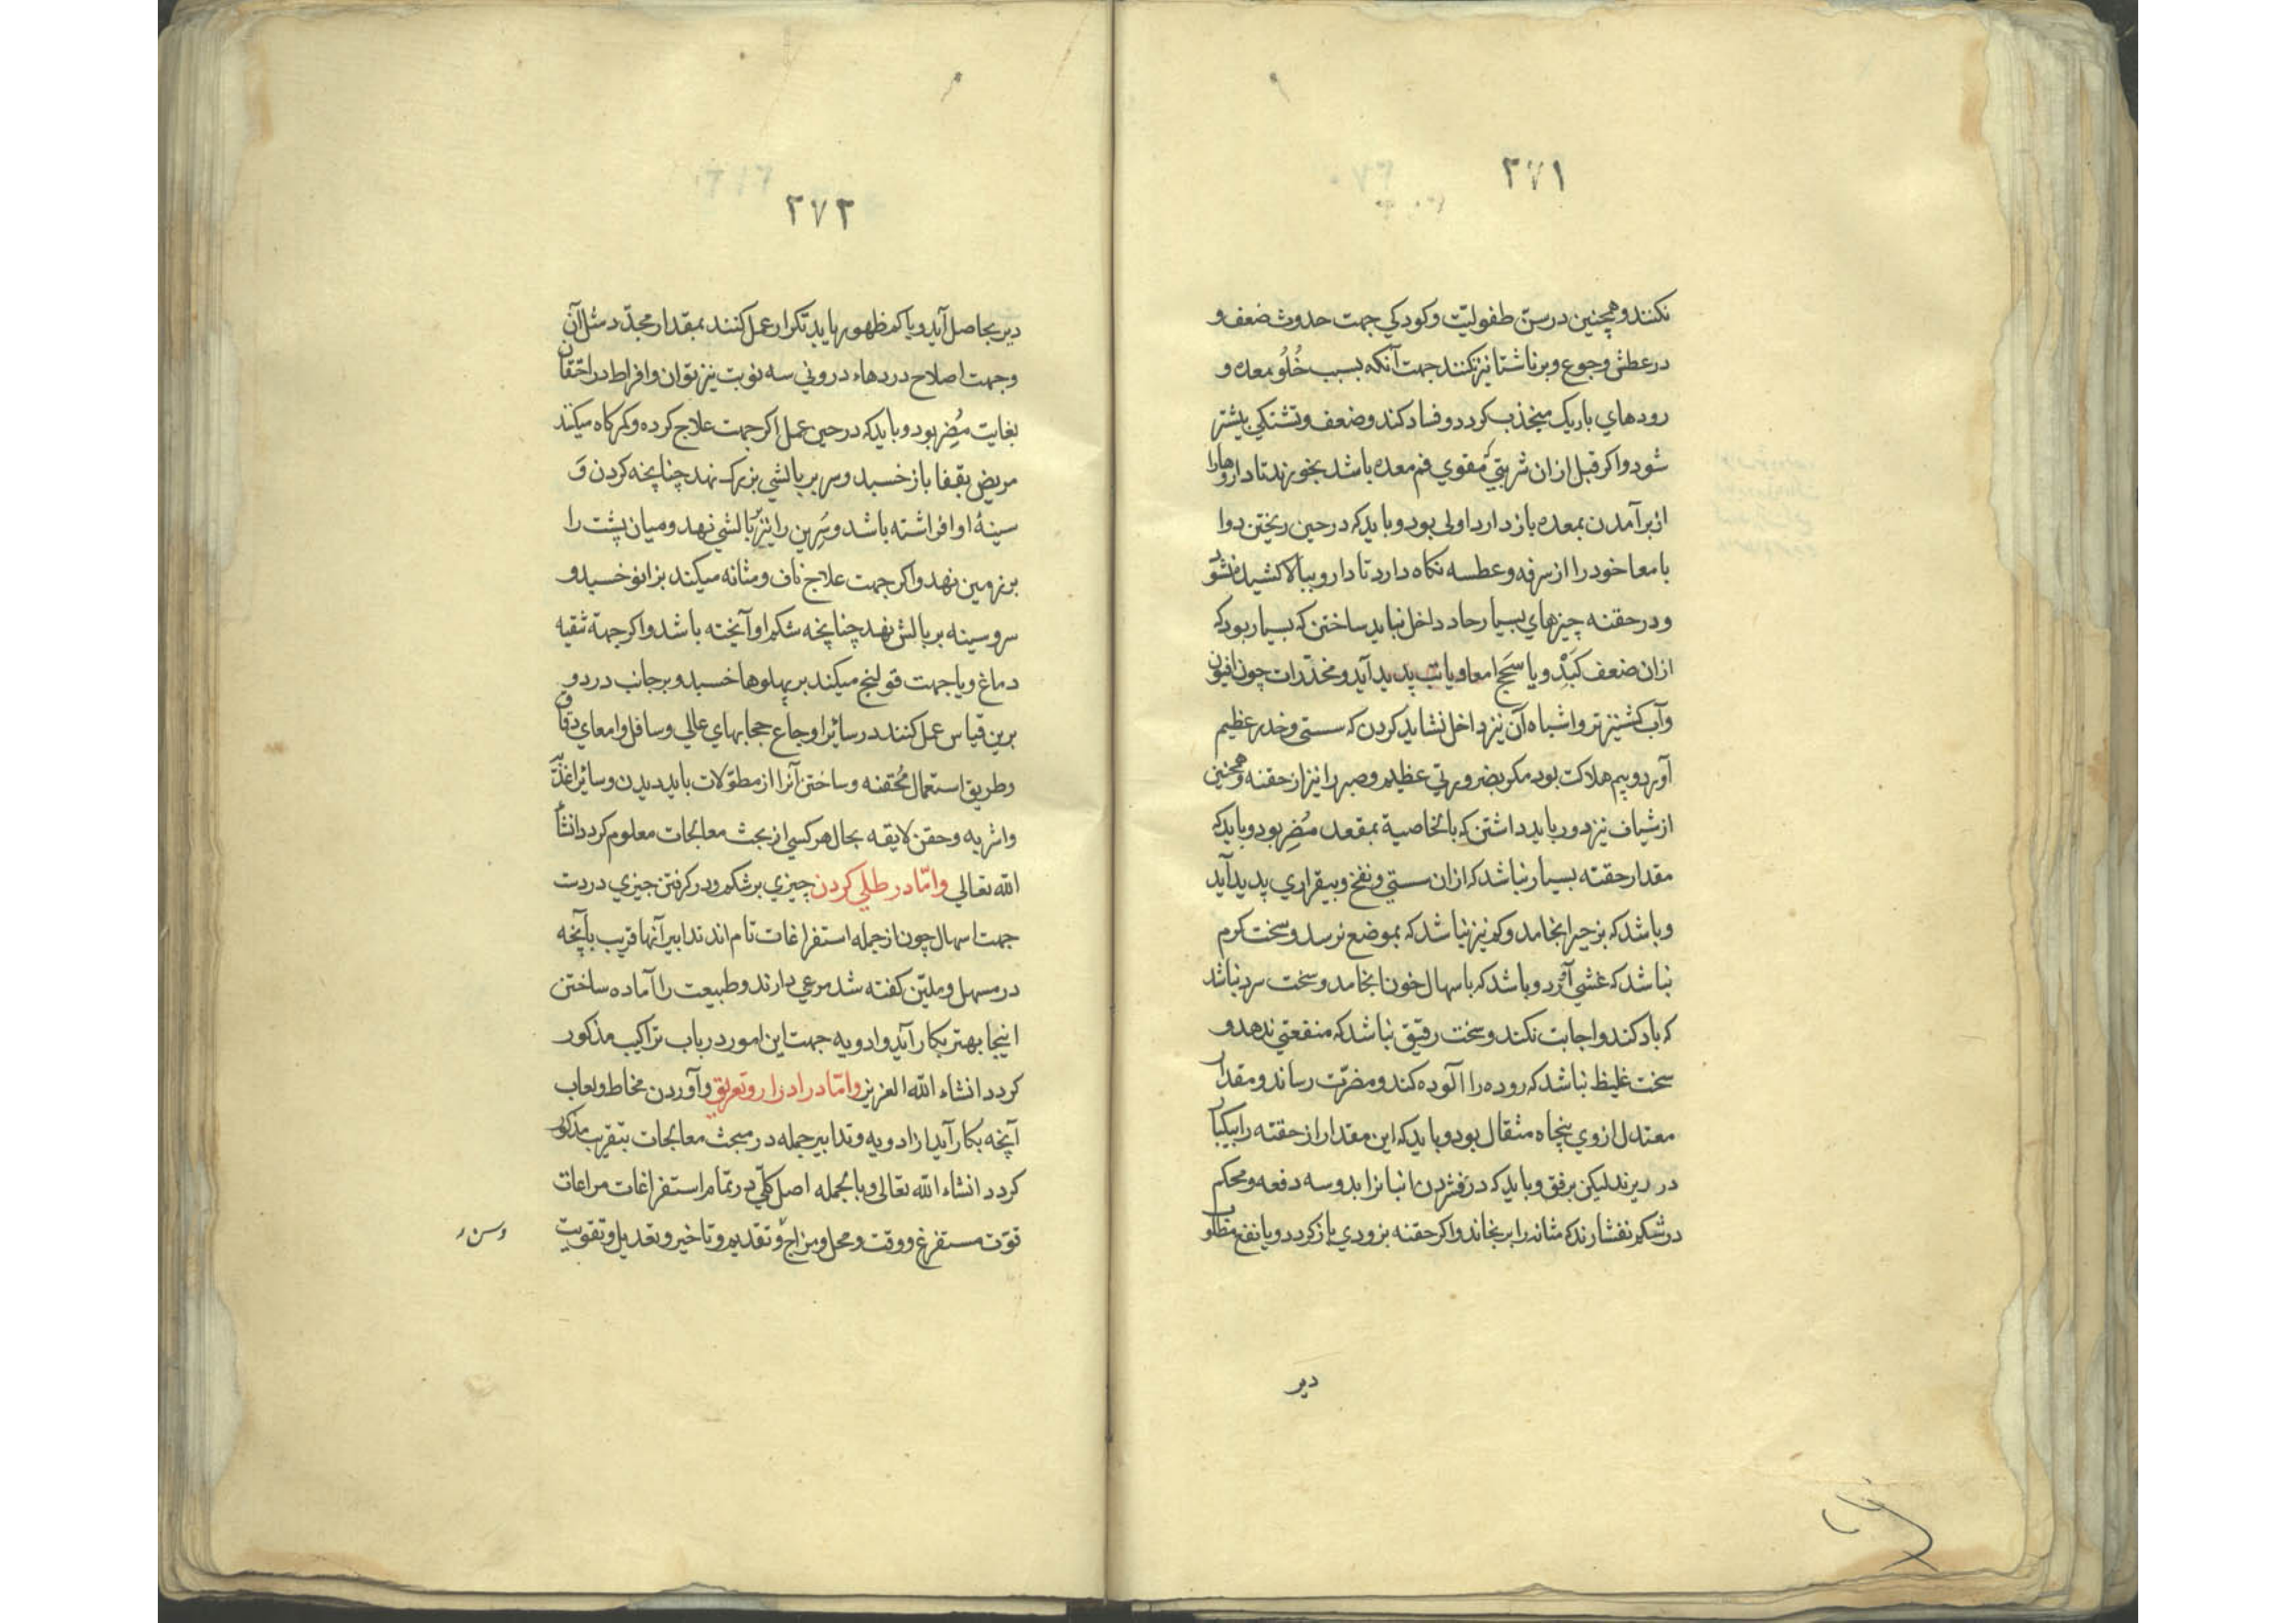 ۲۷۱
نکنند و همچنین در سن طفولیّت و کودکی جهت حدوث ضعف و
در عطش و جوع و بر ناشتا نیز نکنند جهت آنکه بسبب خُلُو معده و
رودهای باریک منجذب کردد و فساد کند و ضعف و تشنکی بیشتر
شود و اکر قبل از ان شربتی که مقوی فم معده باشد بخورند تا داروها را
از برآمدن بمعده باز دارد اولی بود و باید که در حین ریختن دوا
بامعا خود را از سرفه و عطسه نکاه دارد تا دارو ببالا کشیده نشود
و در حقنه چیزهای بسیار حاد داخل نباید ساختن که بسیار بود که
از ان ضعف کَبِدْ و یا سَحج امعا و یا تب پدید آید و مخدّرات چون افیون
و آب کشنیز تر و اشباه آن نیز داخل نشاید کردن که سستی و خدر عظیم
آورد و بیم هلاکت بود مکر بضرورتی عظیم و صبر را نیز از حقنه و همچنین
از شیاف نیز دور باید داشتن که بالخاصیة بمقعد مُضِر بود و باید که
مقدار حقنه بسیار نباشد که از ان سستی و نفخ و بیقراری پدید آید
و باشد که بزحیر انجامد و کم نیز نباشد که بموضع نرسد و سخت کرم
نباشد که غشی آورد و باشد که باسهال خون انجامد و سخت سرد نباشد
که باد کند و اجابت نکند و سخت رقیق نباشد که منفعتی ندهد و
سخت غلیظ نباشد که روده را آلوده کند و مضرّت رساند و مقدار
معتدل از وی پنجاه مثقال بود و باید که این مقدار از حقنه را بیکبار
در ریزند لیکن برفق و باید که در فشردن انبانرا بدو سه دفعه و محکم
در شکم نفشارند که مثانه را برنجاند و اکر حقنه بزودی باز کردد و یا نفع مطلوب
دیر
۲۷۲
دیر بحاصل آید و یا کم ظهور یابد تکرار عمل کنند بمقدار مجدّد مثل آن
و جهت اصلاح دردهاء درونی سه نوبت نیز توان و افراط در احتقان
بغایت مُضِر بود و باید که در حین عمل اکر جهت علاج کرده و کمرکاه میکنند
مریض بقفا باز خسبد و سر بر بالشی بزرک نهد چنانچه کردن وَ
سینهٔ او افراشته باشد و سُرِین را نیز بر بالشی نهد و میان پشت را
بر زمین نهد و اکر جهت علاج ناف و مثانه میکند بزانو خسبد و
سر و سینه بر بالش نهد چنانچه شکم او آیخته باشد و اکر جهة تنقیه
دماغ و یا جهت قولنج میکند بر پهلوها خسبد و بر جانب درد و
برین قیاس عمل کنند در سائر اوجاع حجابهای عالی و سافل و امعای دقاق
و طریق استعمال مُحقنه و ساختن آنرا از مطوّلات باید دیدن و سائر اغذیّه
و اشربه و حقن لایقه بحال هر کسی از بحث معالجات معلوم کردد انشاء
الله تعالی و امّا در طلی کردن چیزی بر شکم و در کرفتن چیزی در دست
جهت اسهال چون از جمله استفراغات تام اند تدابیر آنها قریب بآنچه
در مسهل و ملیّن کفته شد مرعی دارند و طبیعت را آماده ساختن
اینجا بهتر بکار آید و ادویه جهت این امور در باب تراکیب مذکور
کردد انشاء الله العزیز و امّا در ادرار و تعریق و آوردن مخاط و لعاب
آنچه بکار آید از ادویه و تدابیر جمله در مبحث معالجات بتقریب مذکور
کردد انشاء الله تعالی و بالجمله اصل کلّی در تمام استفراغات مراعات
قوّت مستفرغ و وقت و محل و مزاج و تقدیم و تاخیر و تعدیل و تقویت
و سن